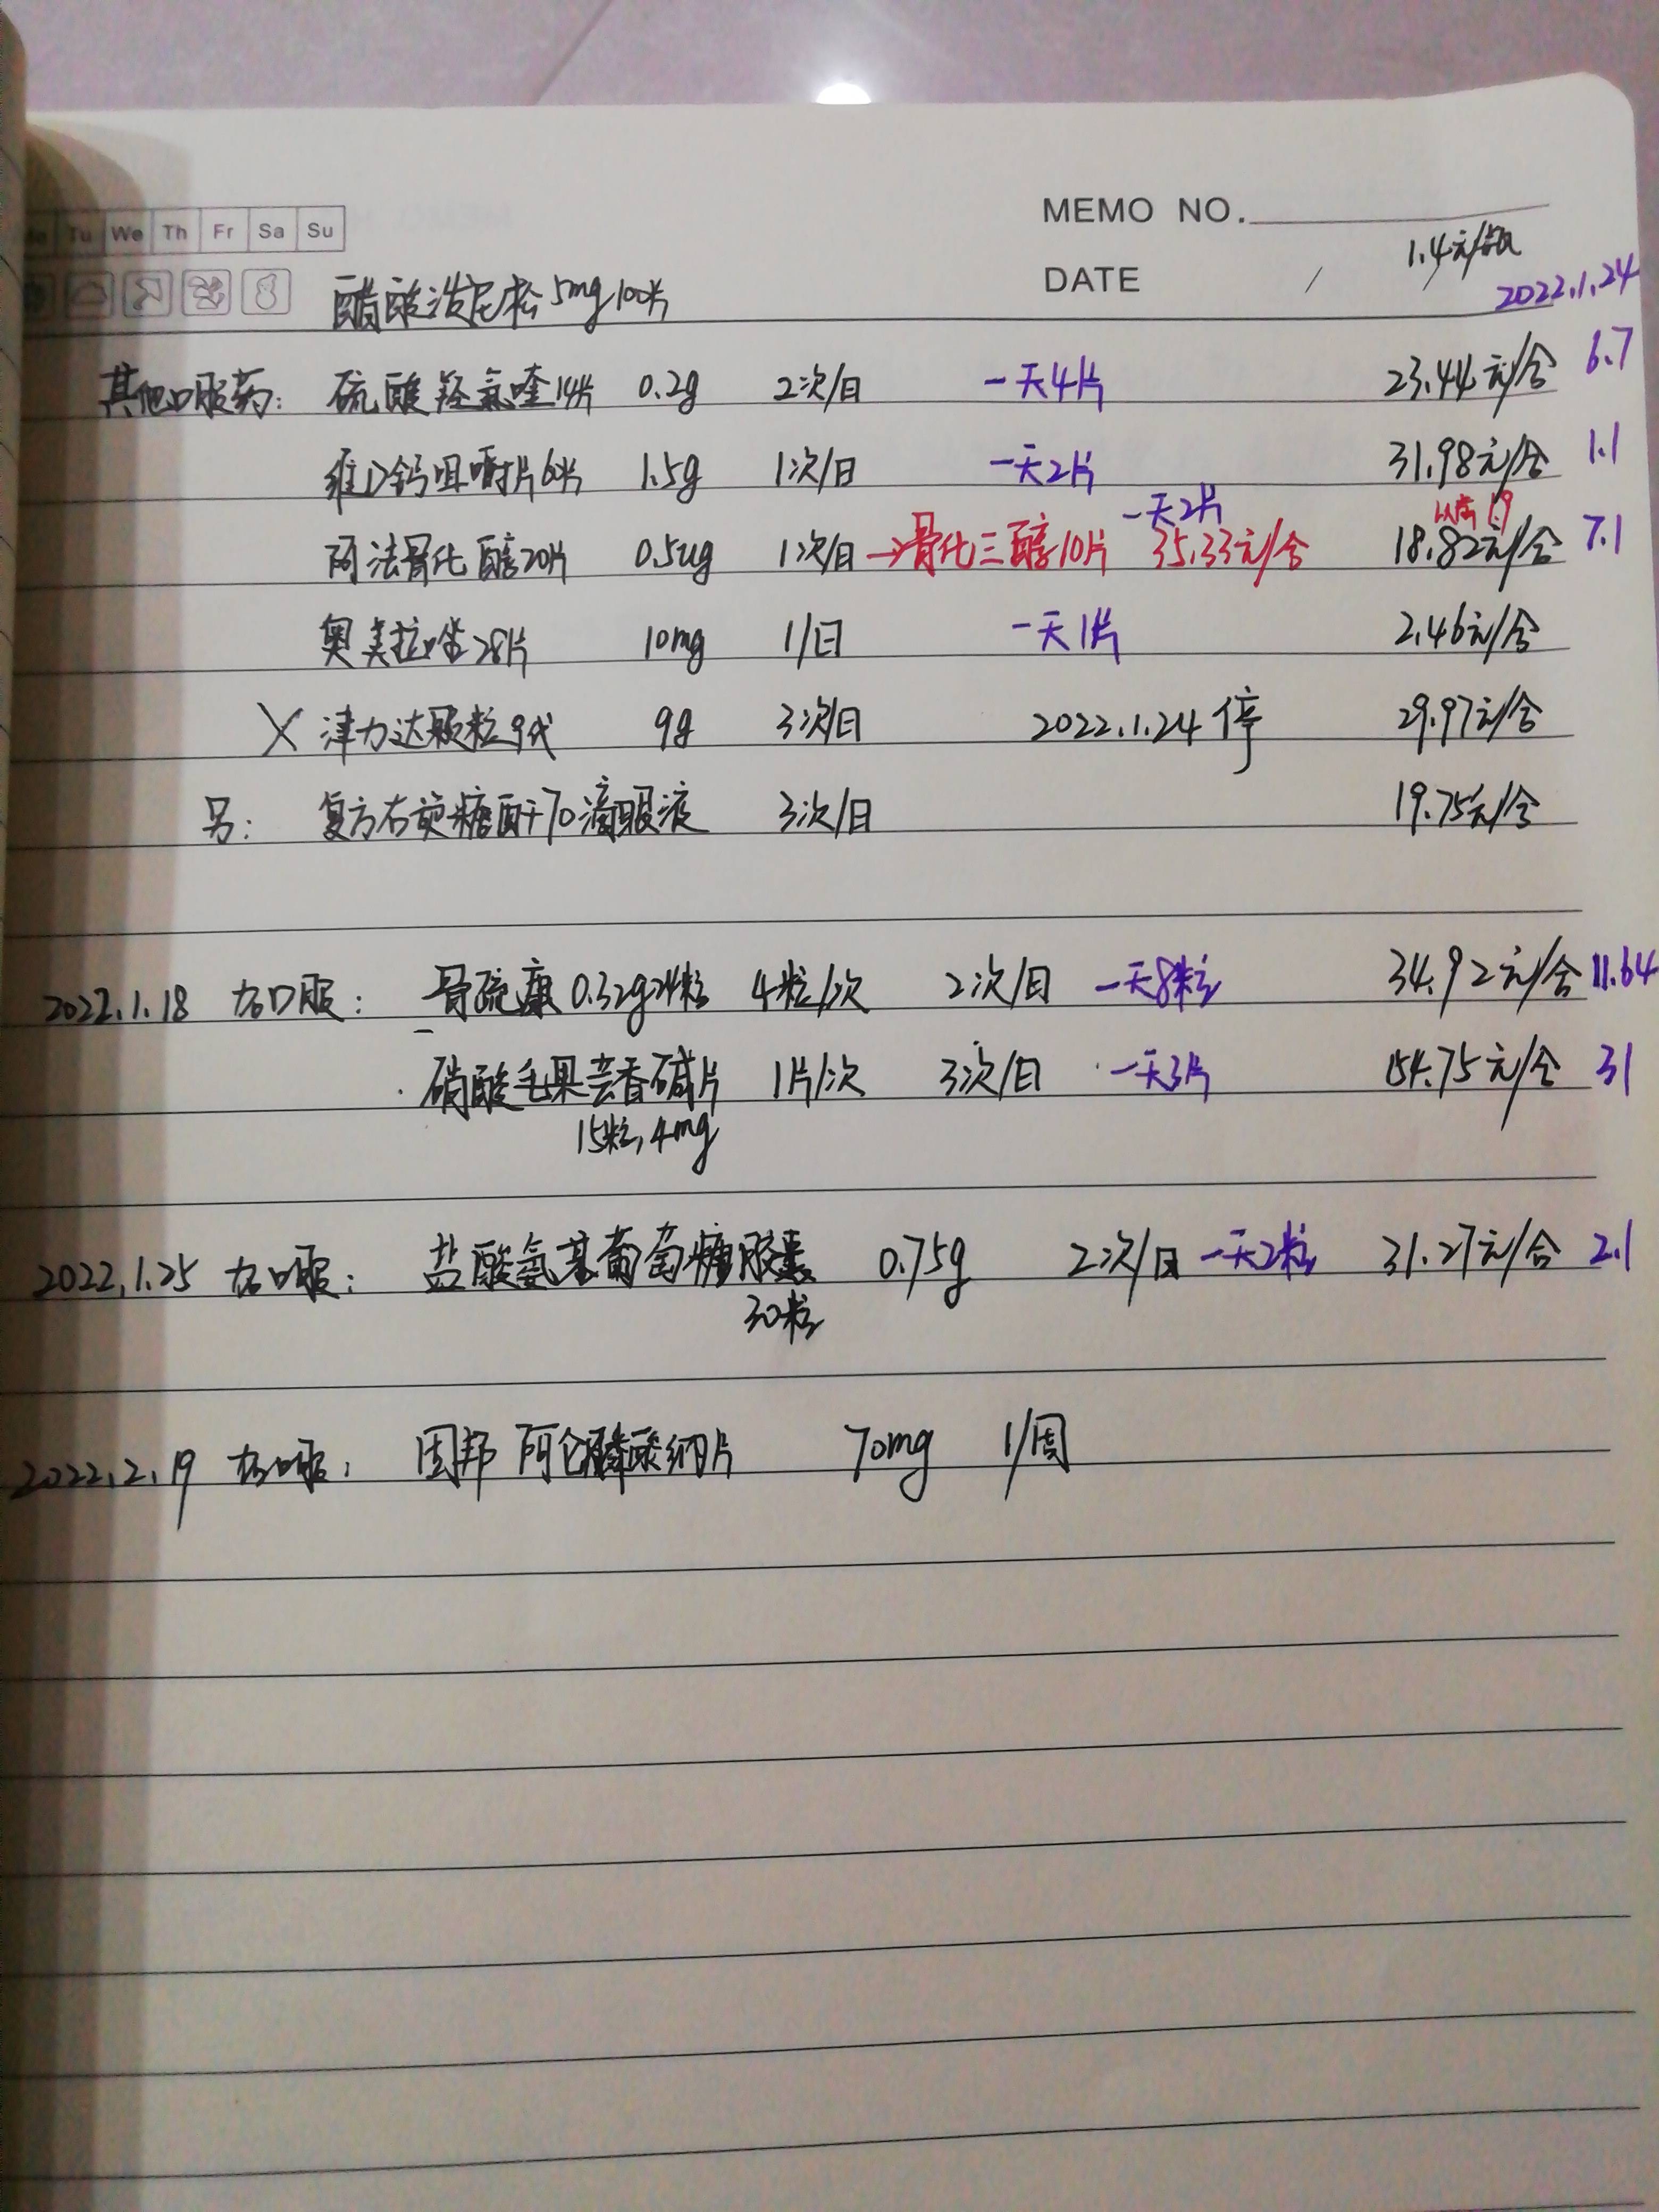 MEMO NO.
Tu We Th Fr Sa Su
DATE / /
1.4元/瓶
2022.1.24
醋酸泼尼松5mg100片
其他口服药: 硫酸羟氯喹14片 0.2g 2次/日 一天4片 23.44元/合 6.7
维D钙咀嚼片60片 1.5g 1次/日 一天2片 31.98元/合 1.1
一天2片
阿法骨化醇20片 0.5ug 1次/日→骨化三醇10片 35.33元/合 18.82元/合 7.1
奥美拉唑28片 10mg 1/日 一天1片 2.46元/合
X 津力达颗粒9代 9g 3次/日 2022.1.24停 29.97元/合
另: 复方右旋糖酐70滴眼液 3次/日 19.75元/合
2022.1.18 加口服: 骨疏康0.32g24粒 4粒/次 2次/日 一天8粒 34.92元/合 11.64
硝酸毛果芸香碱片 1片/次 3次/日 一天3片 154.75元/合 31
15粒,4mg
2022.1.25 加口服: 盐酸氨基葡萄糖胶囊 0.75g 2次/日 一天2粒 31.27元/合 2.1
30粒
2022.2.19 加口服: 固邦 阿仑膦酸纳片 70mg 1/周